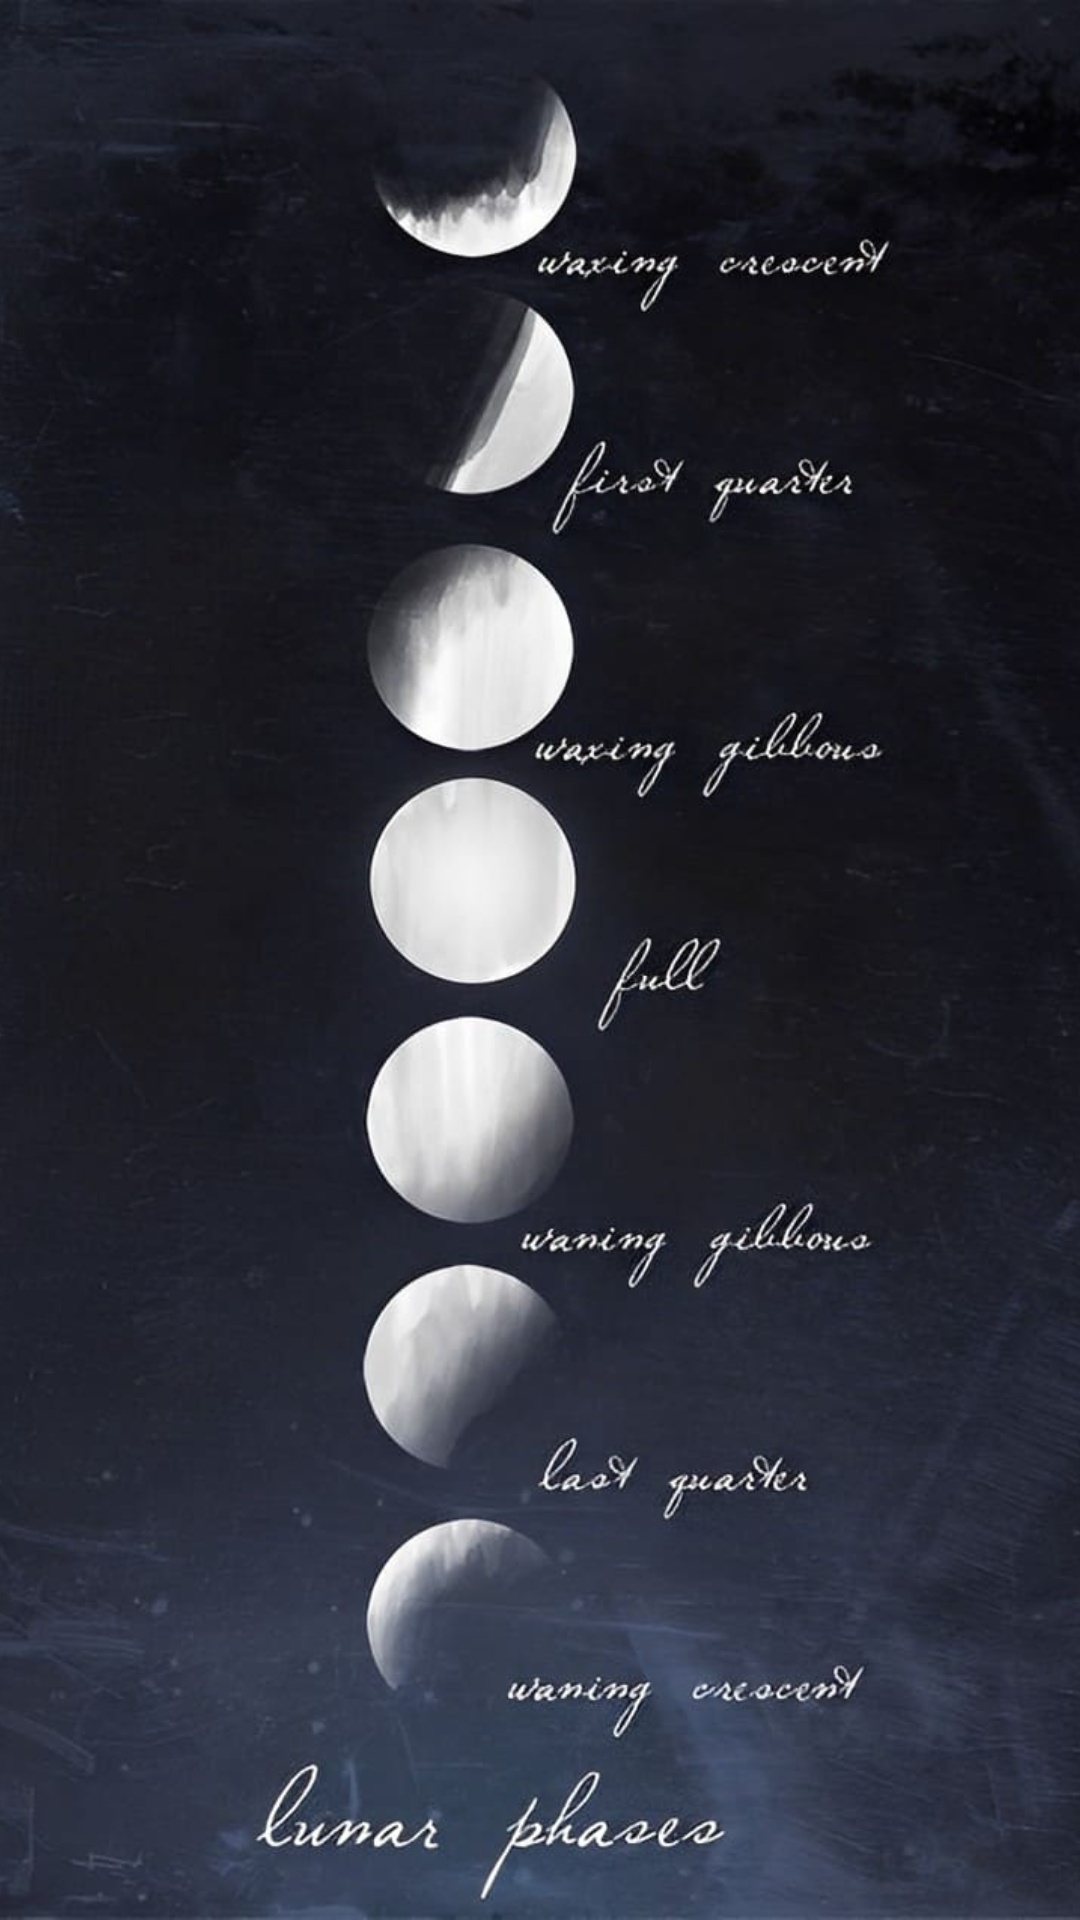 waxing crescent
first quarter
waxing gibbous
full
waning gibbous
last quarter
waning crescent
lunar phases